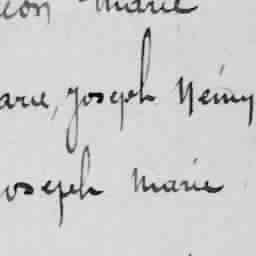 éon Marie
arie, Joseph Rémy
oseph Marie